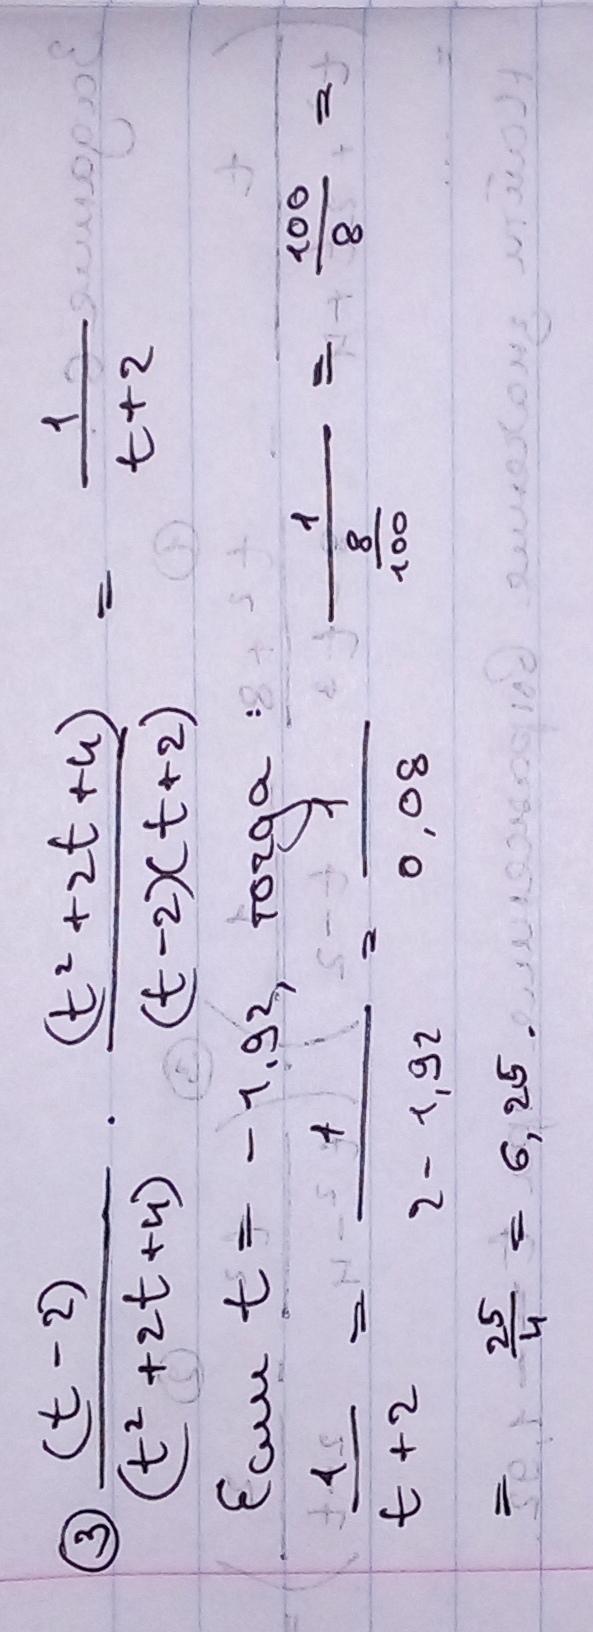 ③ (t-2)/(t²+2t+4) · (t²+2t+4)/(t-2)(t+2) = 1/(t+2)
Если t = -1,92, тогда:
1/(t+2) = 1/(2-1,92) = 1/0,08 = 1/(8/100) = 100/8 =
= 25/4 = 6,25.